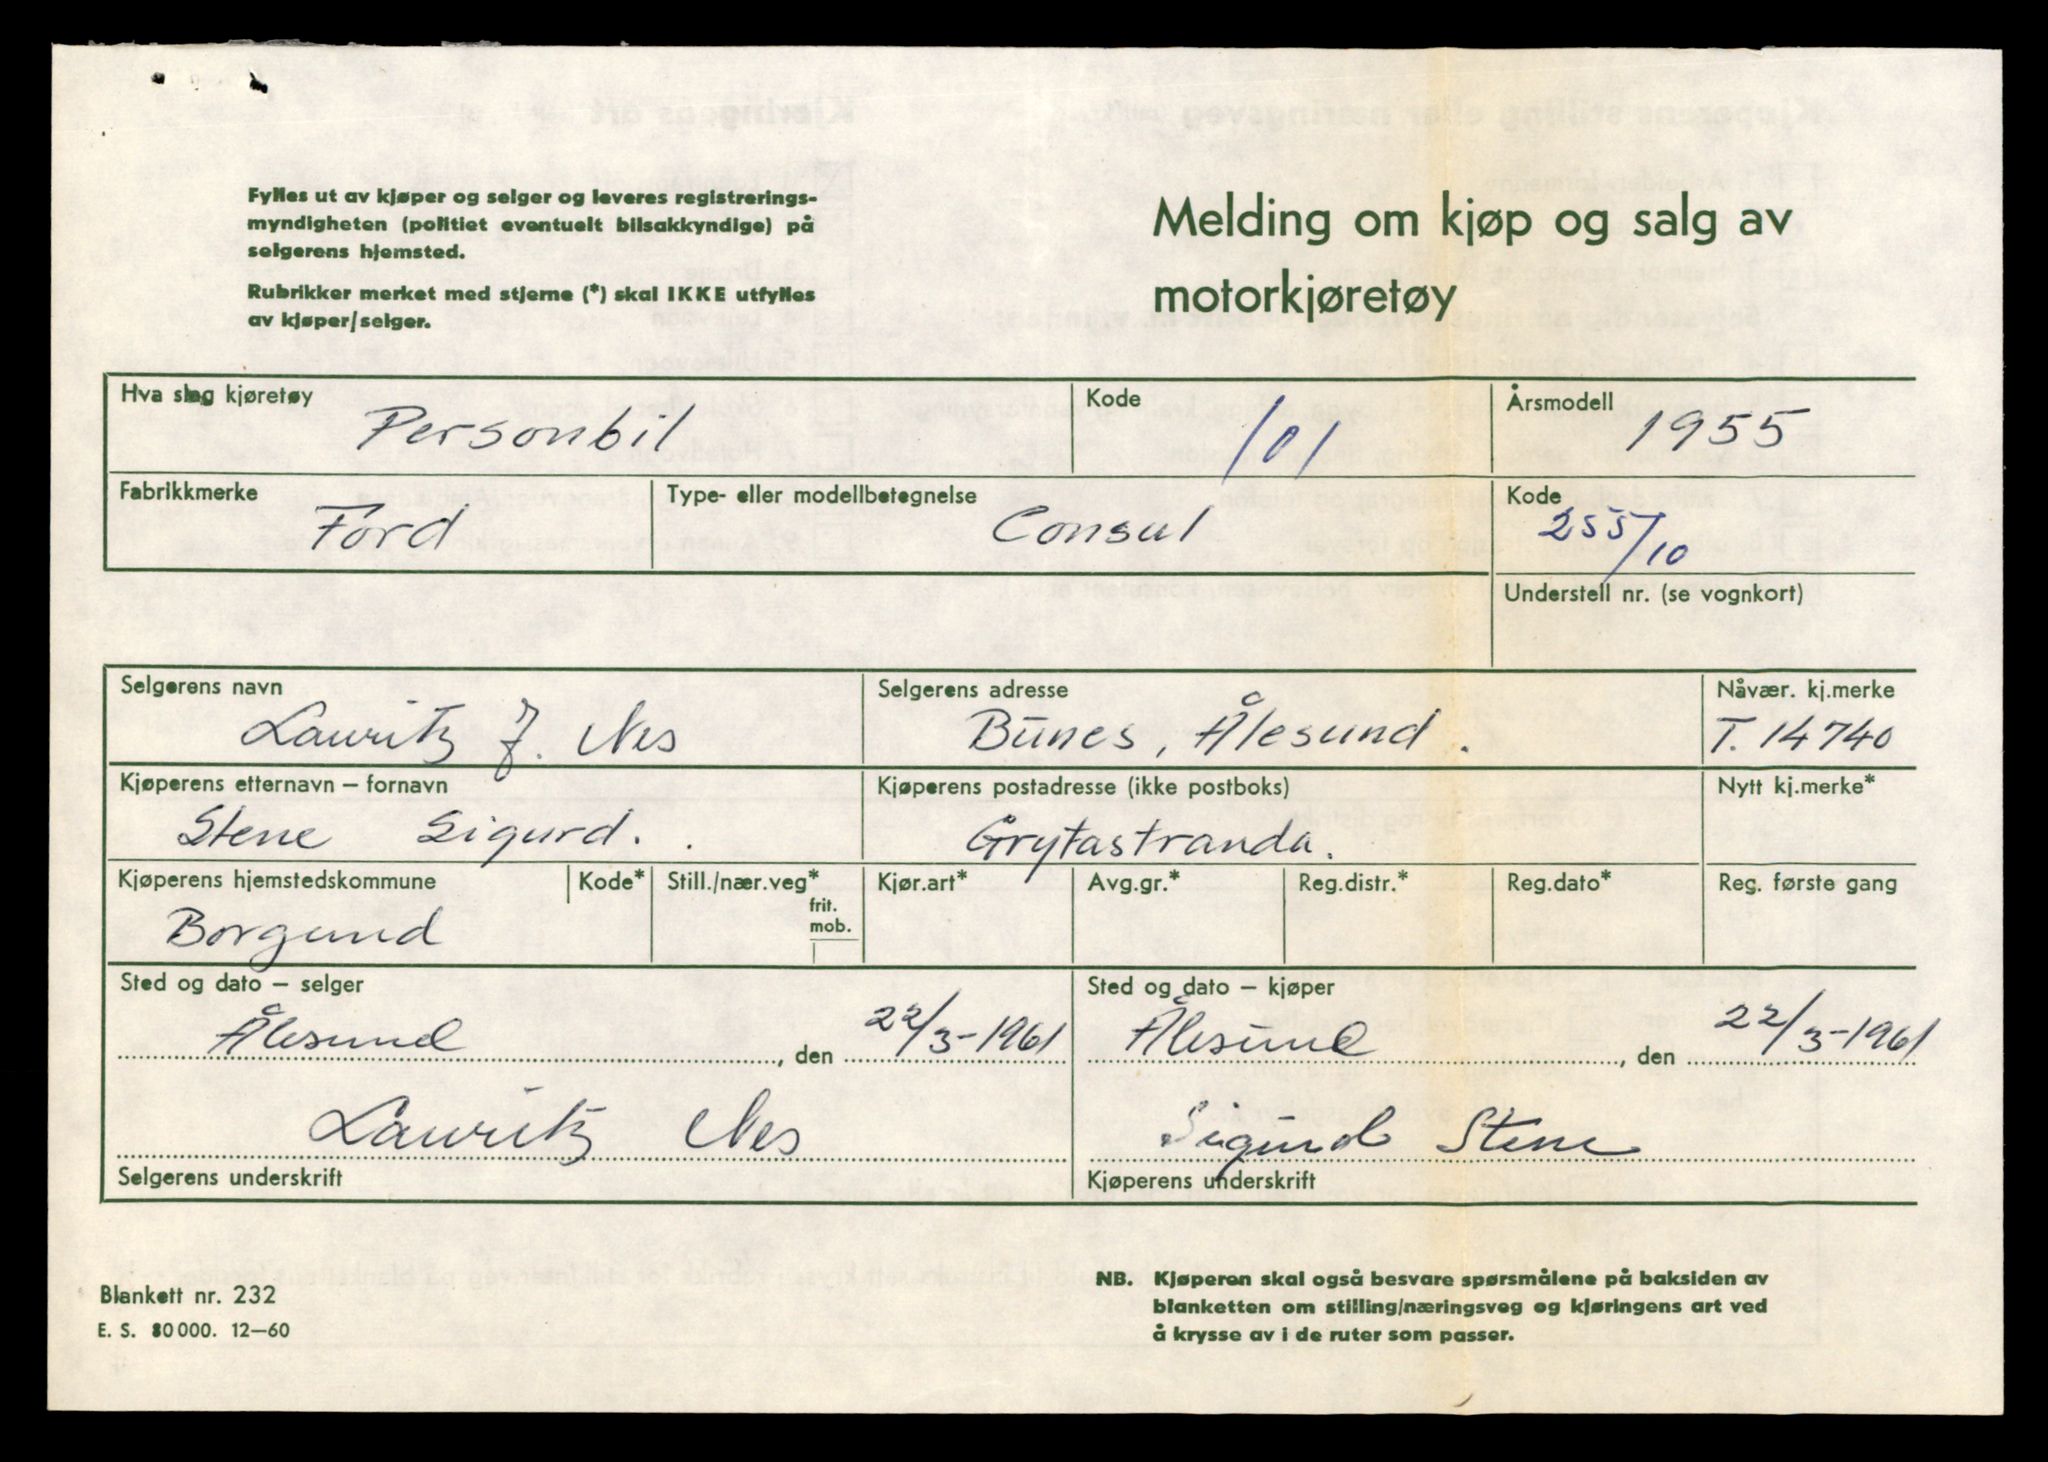 Fylles ut av kjøper og selger og leveres registrerings-
myndigheten (politiet eventuelt bilsakkyndige) på
selgerens hjemsted.
Rubrikker merket med stjerne (*) skal IKKE utfylles
av kjøper/selger.
Melding om kjøp og salg av
motorkjøretøy
Hva slag kjøretøy
Personbil
Kode
101
Årsmodell
1955
Fabrikkmerke
Ford
Type- eller modellbetegnelse
Consul
Kode
255/10
Understell nr. (se vognkort)
Selgerens navn
Lauritz J. Nes
Selgerens adresse
Bunes, Ålesund.
Nåvær. kj.merke
T. 14740
Kjøperens etternavn – fornavn
Stene Sigurd.
Kjøperens postadresse (ikke postboks)
Grytastranda.
Nytt kj.merke*
Kjøperens hjemstedskommune
Borgund
Kode*
Still./nær.veg*
frit.
mob.
Kjør.art*
Avg.gr.*
Reg.distr.*
Reg.dato*
Reg. første gang
Sted og dato – selger
Ålesund, den 22/3-1961
Sted og dato – kjøper
Ålesund, den 22/3-1961
Lauritz Nes
Selgerens underskrift
Sigurd Stene
Kjøperens underskrift
Blankett nr. 232
E. S. 80000. 12–60
NB. Kjøperen skal også besvare spørsmålene på baksiden av
blanketten om stilling/næringsveg og kjøringens art ved
å krysse av i de ruter som passer.